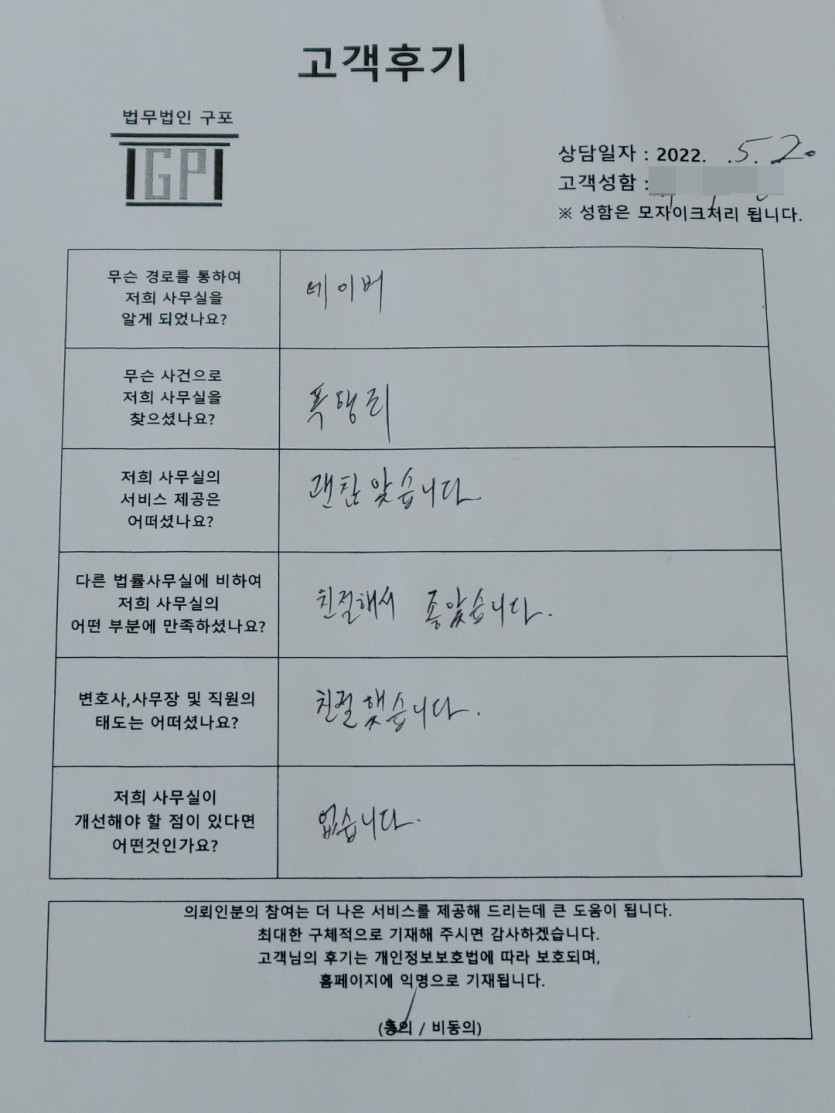 고객후기
법무법인 구포
IGPI
상담일자 : 2022. .5.2.
고객성함 :
※ 성함은 모자이크처리 됩니다.
무슨 경로를 통하여
저희 사무실을
알게 되었나요?
네이버
무슨 사건으로
저희 사무실을
찾으셨나요?
저희 사무실의
서비스 제공은
어떠셨나요?
괜찮았습니다
다른 법률사무실에 비하여
저희 사무실의
어떤 부분에 만족하셨나요?
친절해서 좋았습니다.
변호사,사무장 및 직원의
태도는 어떠셨나요?
친절했습니다.
저희 사무실이
개선해야 할 점이 있다면
어떤것인가요?
없습니다.
의뢰인분의 참여는 더 나은 서비스를 제공해 드리는데 큰 도움이 됩니다.
최대한 구체적으로 기재해 주시면 감사하겠습니다.
고객님의 후기는 개인정보보호법에 따라 보호되며,
홈페이지에 익명으로 기재됩니다.
(동의 / 비동의)